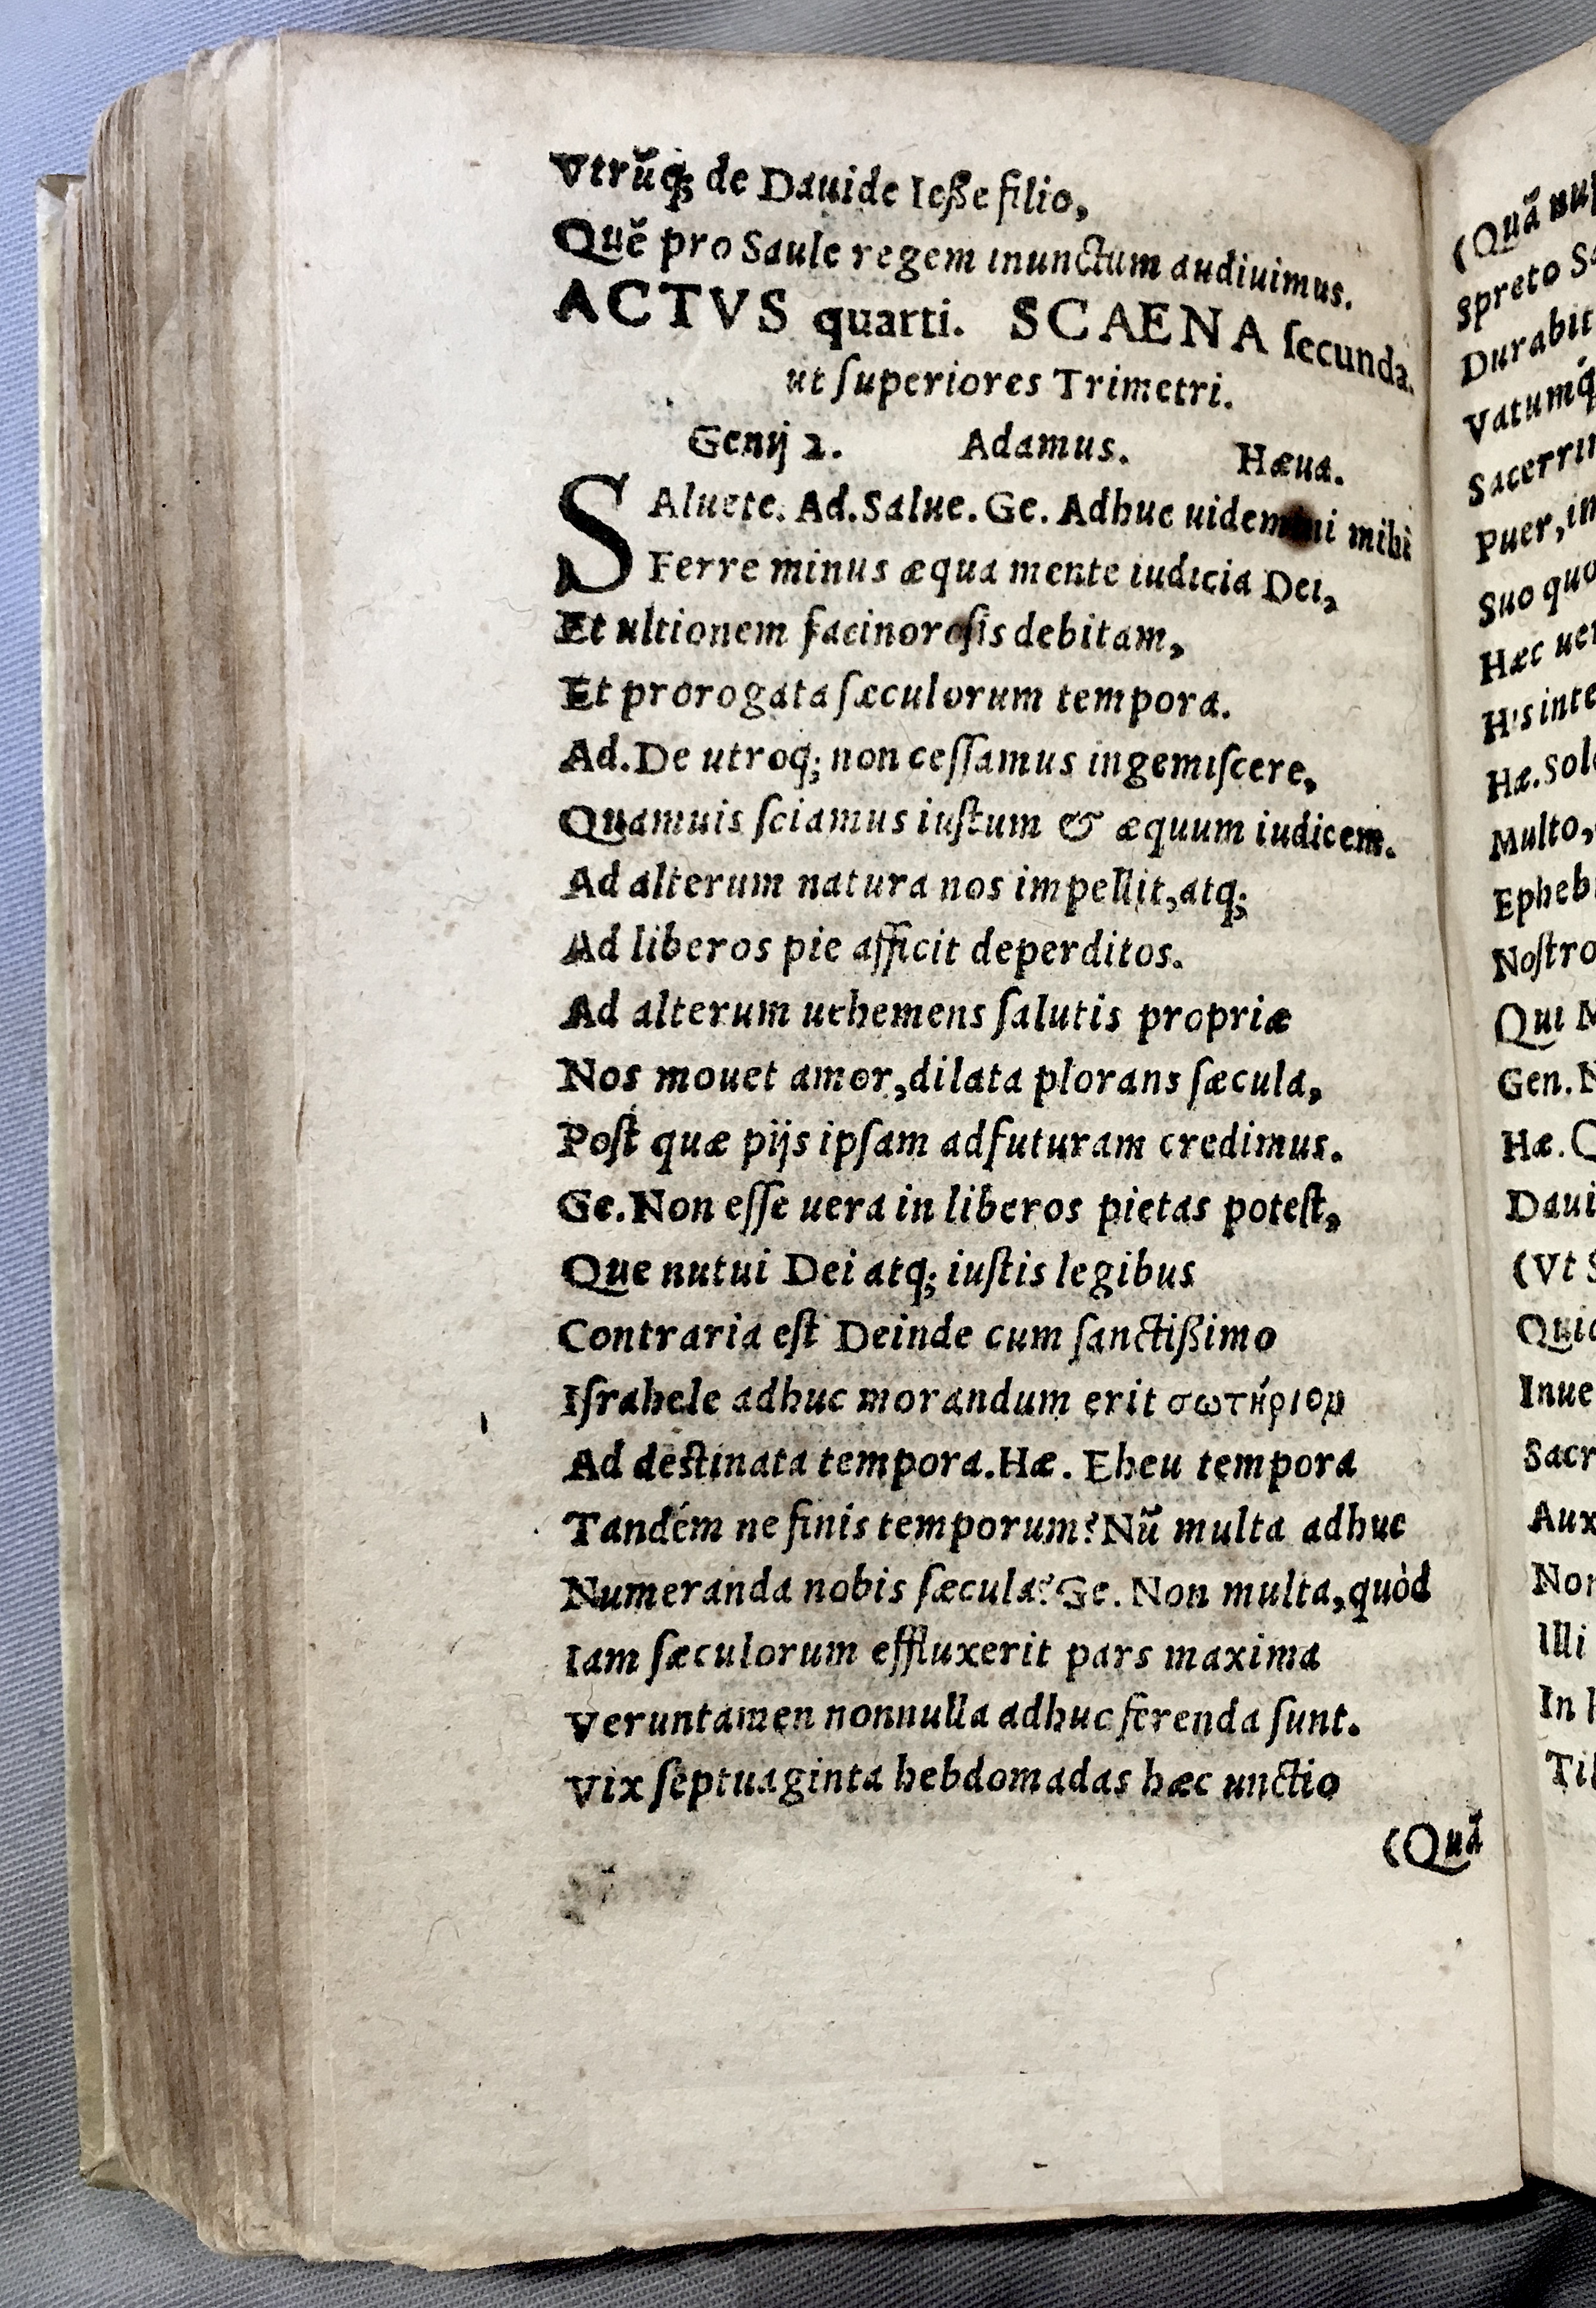 Vtrũq; de Dauide Ieße filio,
Quẽ pro Saule regem inunctum audiuimus.
ACTVS quarti. SCAENA ſecunda.
ut ſuperiores Trimetri.
Genij 2. Adamus. Hæua.
SAluete. Ad. Salue. Ge. Adhuc uidemini mihi
Ferre minus æqua mente iudicia Dei,
Et ultionem facinoroſis debitam,
Et prorogata ſæculorum tempora.
Ad. De utroq; non ceſſamus ingemiſcere,
Quamuis ſciamus iuſtum & æquum iudicem.
Ad alterum natura nos impellit, atq;
Ad liberos pie afficit deperditos.
Ad alterum uehemens ſalutis propriæ
Nos mouet amor, dilata plorans ſæcula,
Poſt quæ pijs ipſam adfuturam credimus.
Ge. Non eſſe uera in liberos pietas poteſt,
Que nutui Dei atq; iuſtis legibus
Contraria eſt Deinde cum ſanctißimo
Iſrahele adhuc morandum erit σωτήριομ
Ad deſtinata tempora. Hæ. Eheu tempora
Tandém ne finis temporum? Nũ multa adhuc
Numeranda nobis ſæcula? Ge. Non multa, quòd
Iam ſæculorum effluxerit pars maxima
Veruntamen nonnulla adhuc ferenda ſunt.
Vix ſeptuaginta hebdomadas hæc unctio
(Quã
(Quã
Spreto
Durabit
Vatumq́
Puer,
Suo
Hæc
Hæ.
Multo,
Noſtro
Qui
Gen.
Hæ.
(Vt
In